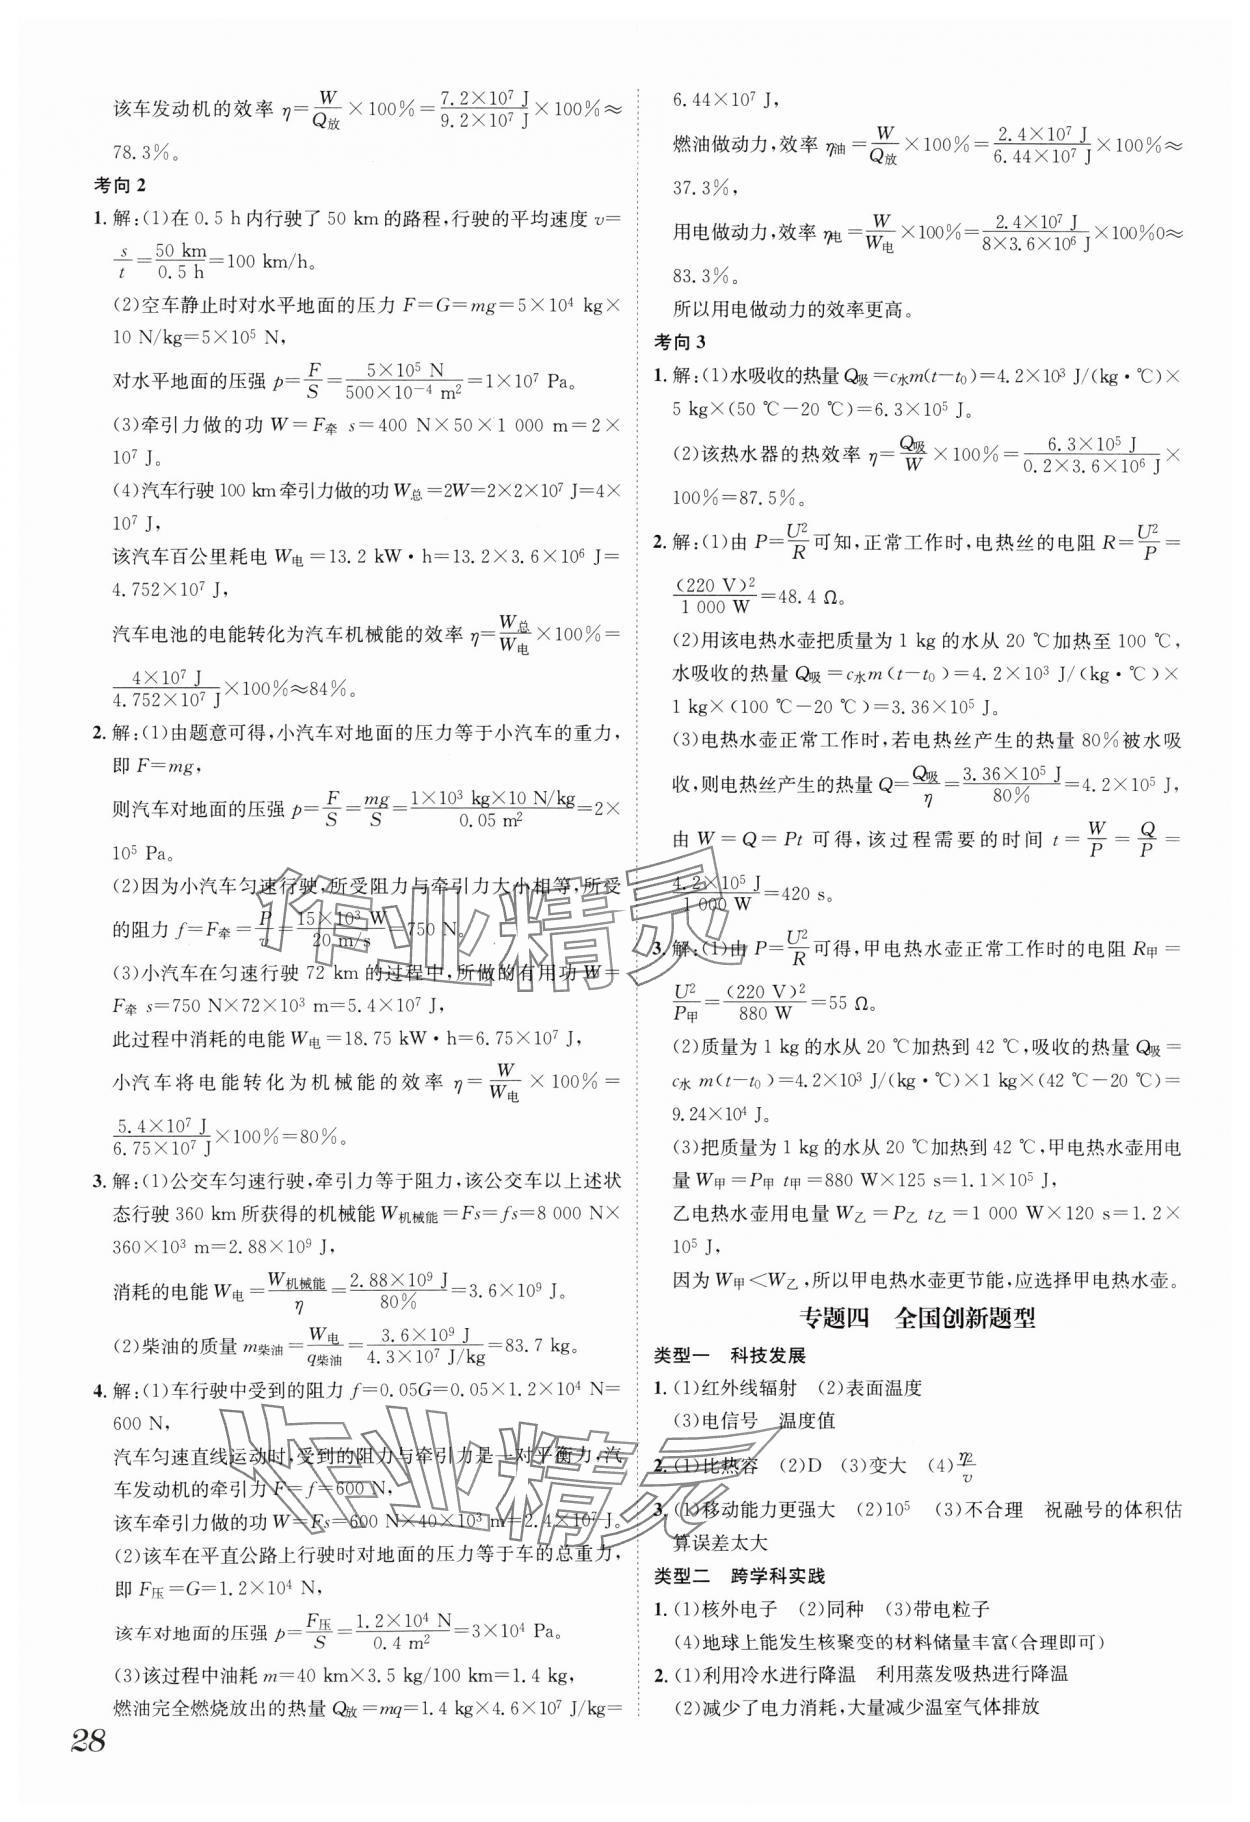 该车发动机的效率 η=W/Q放×100%=7.2×10⁷ J/9.2×10⁷ J×100%≈
78.3%。
考向2
1. 解:(1)在 0.5 h内行驶了 50 km的路程,行驶的平均速度 v=
s/t=50 km/0.5 h=100 km/h。
(2)空车静止时对水平地面的压力 F=G=mg=5×10⁴ kg×
10 N/kg=5×10⁵ N,
对水平地面的压强 p=F/S=5×10⁵ N/500×10⁻⁴ m²=1×10⁷ Pa。
(3)牵引力做的功 W=F牵 s=400 N×50×1 000 m=2×
10⁷ J。
(4)汽车行驶 100 km牵引力做的功 W总=2W=2×2×10⁷ J=4×
10⁷ J,
该汽车百公里耗电 W电=13.2 kW·h=13.2×3.6×10⁶ J=
4.752×10⁷ J,
汽车电池的电能转化为汽车机械能的效率 η=W总/W电×100%=
4×10⁷ J/4.752×10⁷ J×100%≈84%。
2. 解:(1)由题意可得,小汽车对地面的压力等于小汽车的重力,
即 F=mg,
则汽车对地面的压强 p=F/S=mg/S=1×10³ kg×10 N/kg/0.05 m²=2×
10⁵ Pa。
(2)因为小汽车匀速行驶,所受阻力与牵引力大小相等,所受
的阻力 f=F牵=P/v=15×10³ W/20 m/s=750 N。
(3)小汽车在匀速行驶 72 km的过程中,所做的有用功 W=
F牵 s=750 N×72×10³ m=5.4×10⁷ J,
此过程中消耗的电能 W电=18.75 kW·h=6.75×10⁷ J,
小汽车将电能转化为机械能的效率 η=W/W电×100%=
5.4×10⁷ J/6.75×10⁷ J×100%=80%。
3. 解:(1)公交车匀速行驶,牵引力等于阻力,该公交车以上述状
态行驶360 km所获得的机械能 W机械能=Fs=fs=8 000 N×
360×10³ m=2.88×10⁹ J,
消耗的电能 W电=W机械能/η=2.88×10⁹ J/80%=3.6×10⁹ J。
(2)柴油的质量 m柴油=W电/q柴油=3.6×10⁹ J/4.3×10⁷ J/kg=83.7 kg。
4. 解:(1)车行驶中受到的阻力 f=0.05G=0.05×1.2×10⁴ N=
600 N,
汽车匀速直线运动时,受到的阻力与牵引力是一对平衡力,汽
车发动机的牵引力 F=f=600 N,
该车牵引力做的功 W=Fs=600 N×40×10³ m=2.4×10⁷ J。
(2)该车在平直公路上行驶时对地面的压力等于车的总重力,
即 F压=G=1.2×10⁴ N,
该车对地面的压强 p=F压/S=1.2×10⁴ N/0.4 m²=3×10⁴ Pa。
(3)该过程中油耗 m=40 km×3.5 kg/100 km=1.4 kg,
燃油完全燃烧放出的热量 Q放=mq=1.4 kg×4.6×10⁷ J/kg=
28
6.44×10⁷ J,
燃油做动力,效率 η油=W/Q放×100%=2.4×10⁷ J/6.44×10⁷ J×100%≈
37.3%,
用电做动力,效率 η电=W/W电×100%=2.4×10⁷ J/8×3.6×10⁶ J×100%0≈
83.3%。
所以用电做动力的效率更高。
考向3
1. 解:(1)水吸收的热量 Q吸=c水m(t-t₀)=4.2×10³ J/(kg·℃)×
5 kg×(50 ℃-20 ℃)=6.3×10⁵ J。
(2)该热水器的热效率 η=Q吸/W×100%=6.3×10⁵ J/0.2×3.6×10⁶ J×
100%=87.5%。
2. 解:(1)由 P=U²/R可知,正常工作时,电热丝的电阻 R=U²/P=
(220 V)²/1 000 W=48.4 Ω。
(2)用该电热水壶把质量为 1 kg的水从 20 ℃加热至 100 ℃,
水吸收的热量 Q吸=c水m(t-t₀)=4.2×10³ J/(kg·℃)×
1 kg×(100 ℃-20 ℃)=3.36×10⁵ J。
(3)电热水壶正常工作时,若电热丝产生的热量 80%被水吸
收,则电热丝产生的热量 Q=Q吸/η=3.36×10⁵ J/80%=4.2×10⁵ J,
由 W=Q=Pt 可得,该过程需要的时间 t=W/P=Q/P=
4.2×10⁵ J/1 000 W=420 s。
3. 解:(1)由 P=U²/R可得,甲电热水壶正常工作时的电阻 R甲=
U²/P甲=(220 V)²/880 W=55 Ω。
(2)质量为 1 kg的水从 20 ℃加热到 42 ℃,吸收的热量 Q吸=
c水 m(t-t₀)=4.2×10³ J/(kg·℃)×1 kg×(42 ℃-20 ℃)=
9.24×10⁴ J。
(3)把质量为 1 kg的水从 20 ℃加热到 42 ℃,甲电热水壶用电
量 W甲=P甲 t甲=880 W×125 s=1.1×10⁵ J,
乙电热水壶用电量 W乙=P乙 t乙=1 000 W×120 s=1.2×
10⁵ J,
因为 W甲<W乙,所以甲电热水壶更节能,应选择甲电热水壶。
专题四 全国创新题型
类型一 科技发展
1. (1)红外线辐射 (2)表面温度
(3)电信号 温度值
2. (1)比热容 (2)D (3)变大 (4)η₂/v
3. (1)移动能力更强大 (2)10⁵ (3)不合理 祝融号的体积估
算误差太大
类型二 跨学科实践
1. (1)核外电子 (2)同种 (3)带电粒子
(4)地球上能发生核聚变的材料储量丰富(合理即可)
2. (1)利用冷水进行降温 利用蒸发吸热进行降温
(2)减少了电力消耗,大量减少温室气体排放
作业精灵
作业精灵